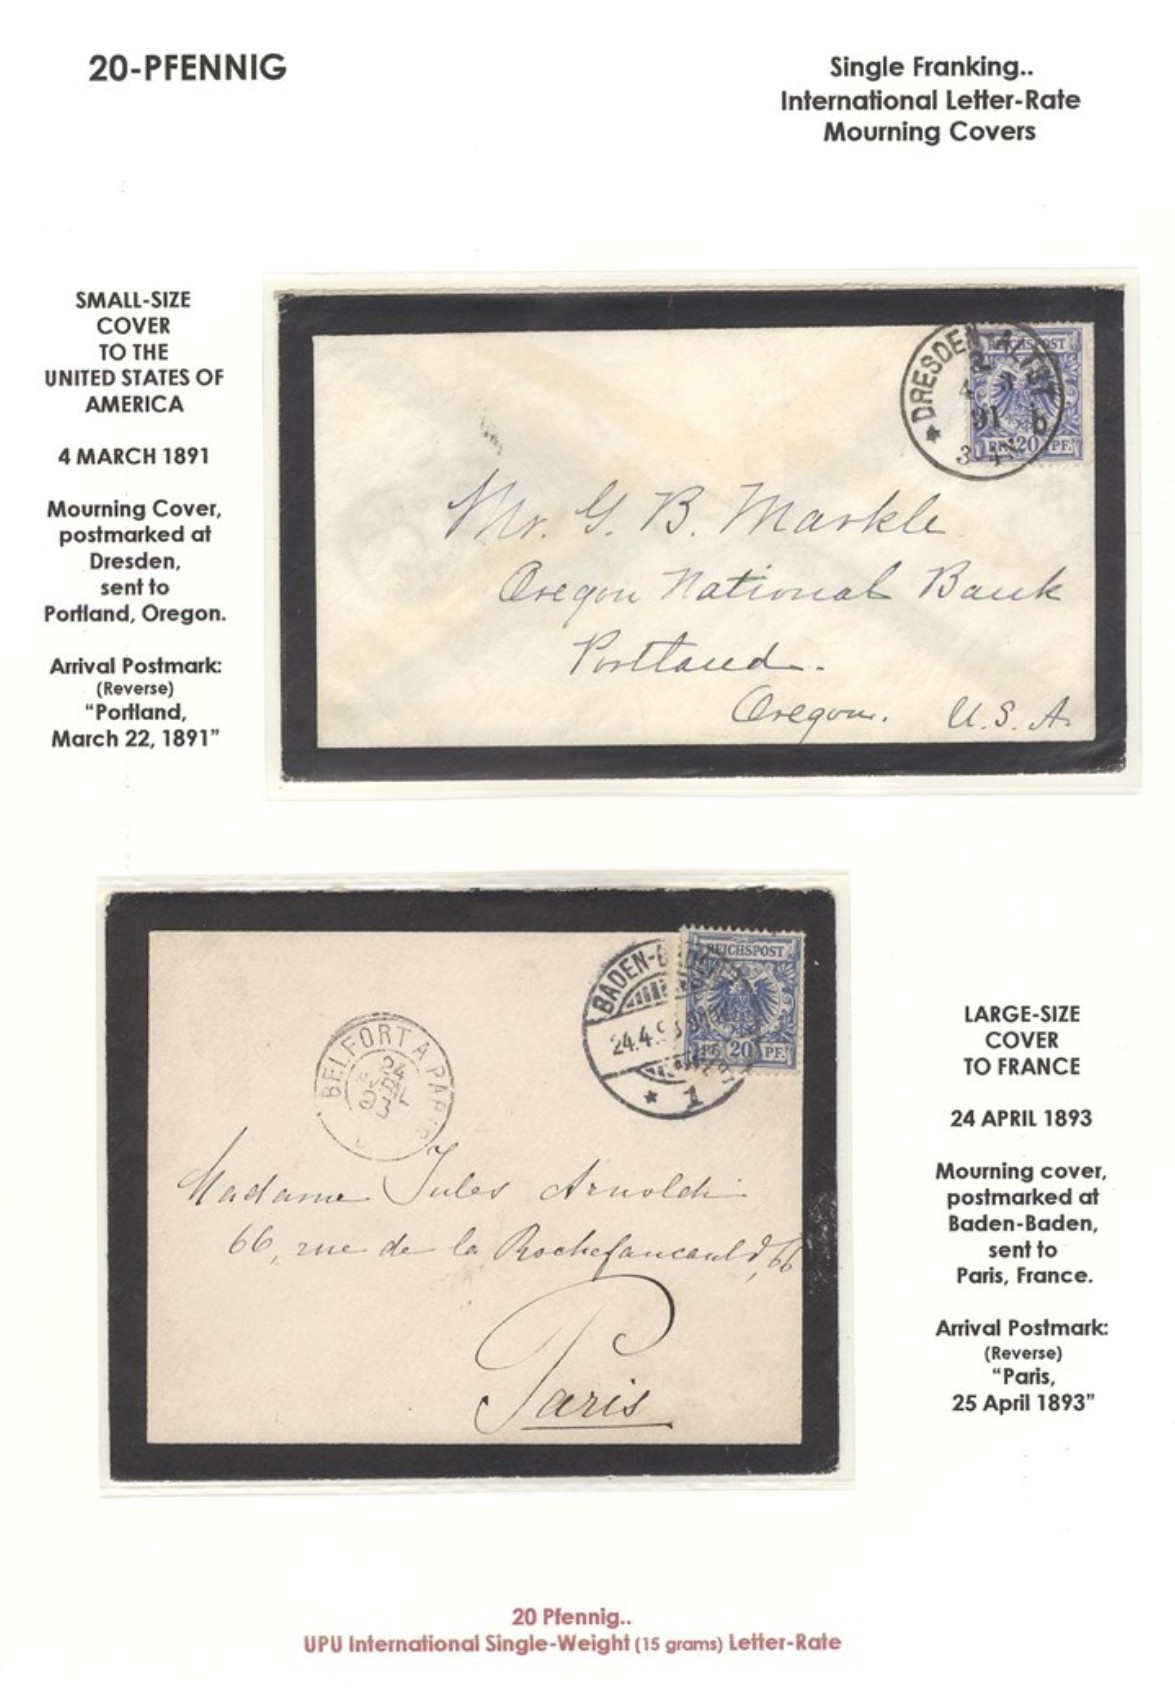 20-PFENNIG
Single Franking..
International Letter-Rate
Mourning Covers
SMALL-SIZE
COVER
TO THE
UNITED STATES OF
AMERICA
4 MARCH 1891
Mourning Cover,
postmarked at
Dresden,
sent to
Portland, Oregon.
Arrival Postmark:
(Reverse)
"Portland,
March 22, 1891"
DRESDEN
REICHSPOST
91 b
PF. 20 PF.
Mr. G. B. Markle
Oregon National Bank
Portland.
Oregon. U.S.A.
BADEN-BADEN
REICHSPOST
24.4.93
PF. 20 PF.
1
BELFORT A PARIS
24
AVRIL
93
Madame Jules Arnoldi
66, rue de la Rochefaucauld, 66
Paris
LARGE-SIZE
COVER
TO FRANCE
24 APRIL 1893
Mourning cover,
postmarked at
Baden-Baden,
sent to
Paris, France.
Arrival Postmark:
(Reverse)
"Paris,
25 April 1893"
20 Pfennig..
UPU International Single-Weight (15 grams) Letter-Rate